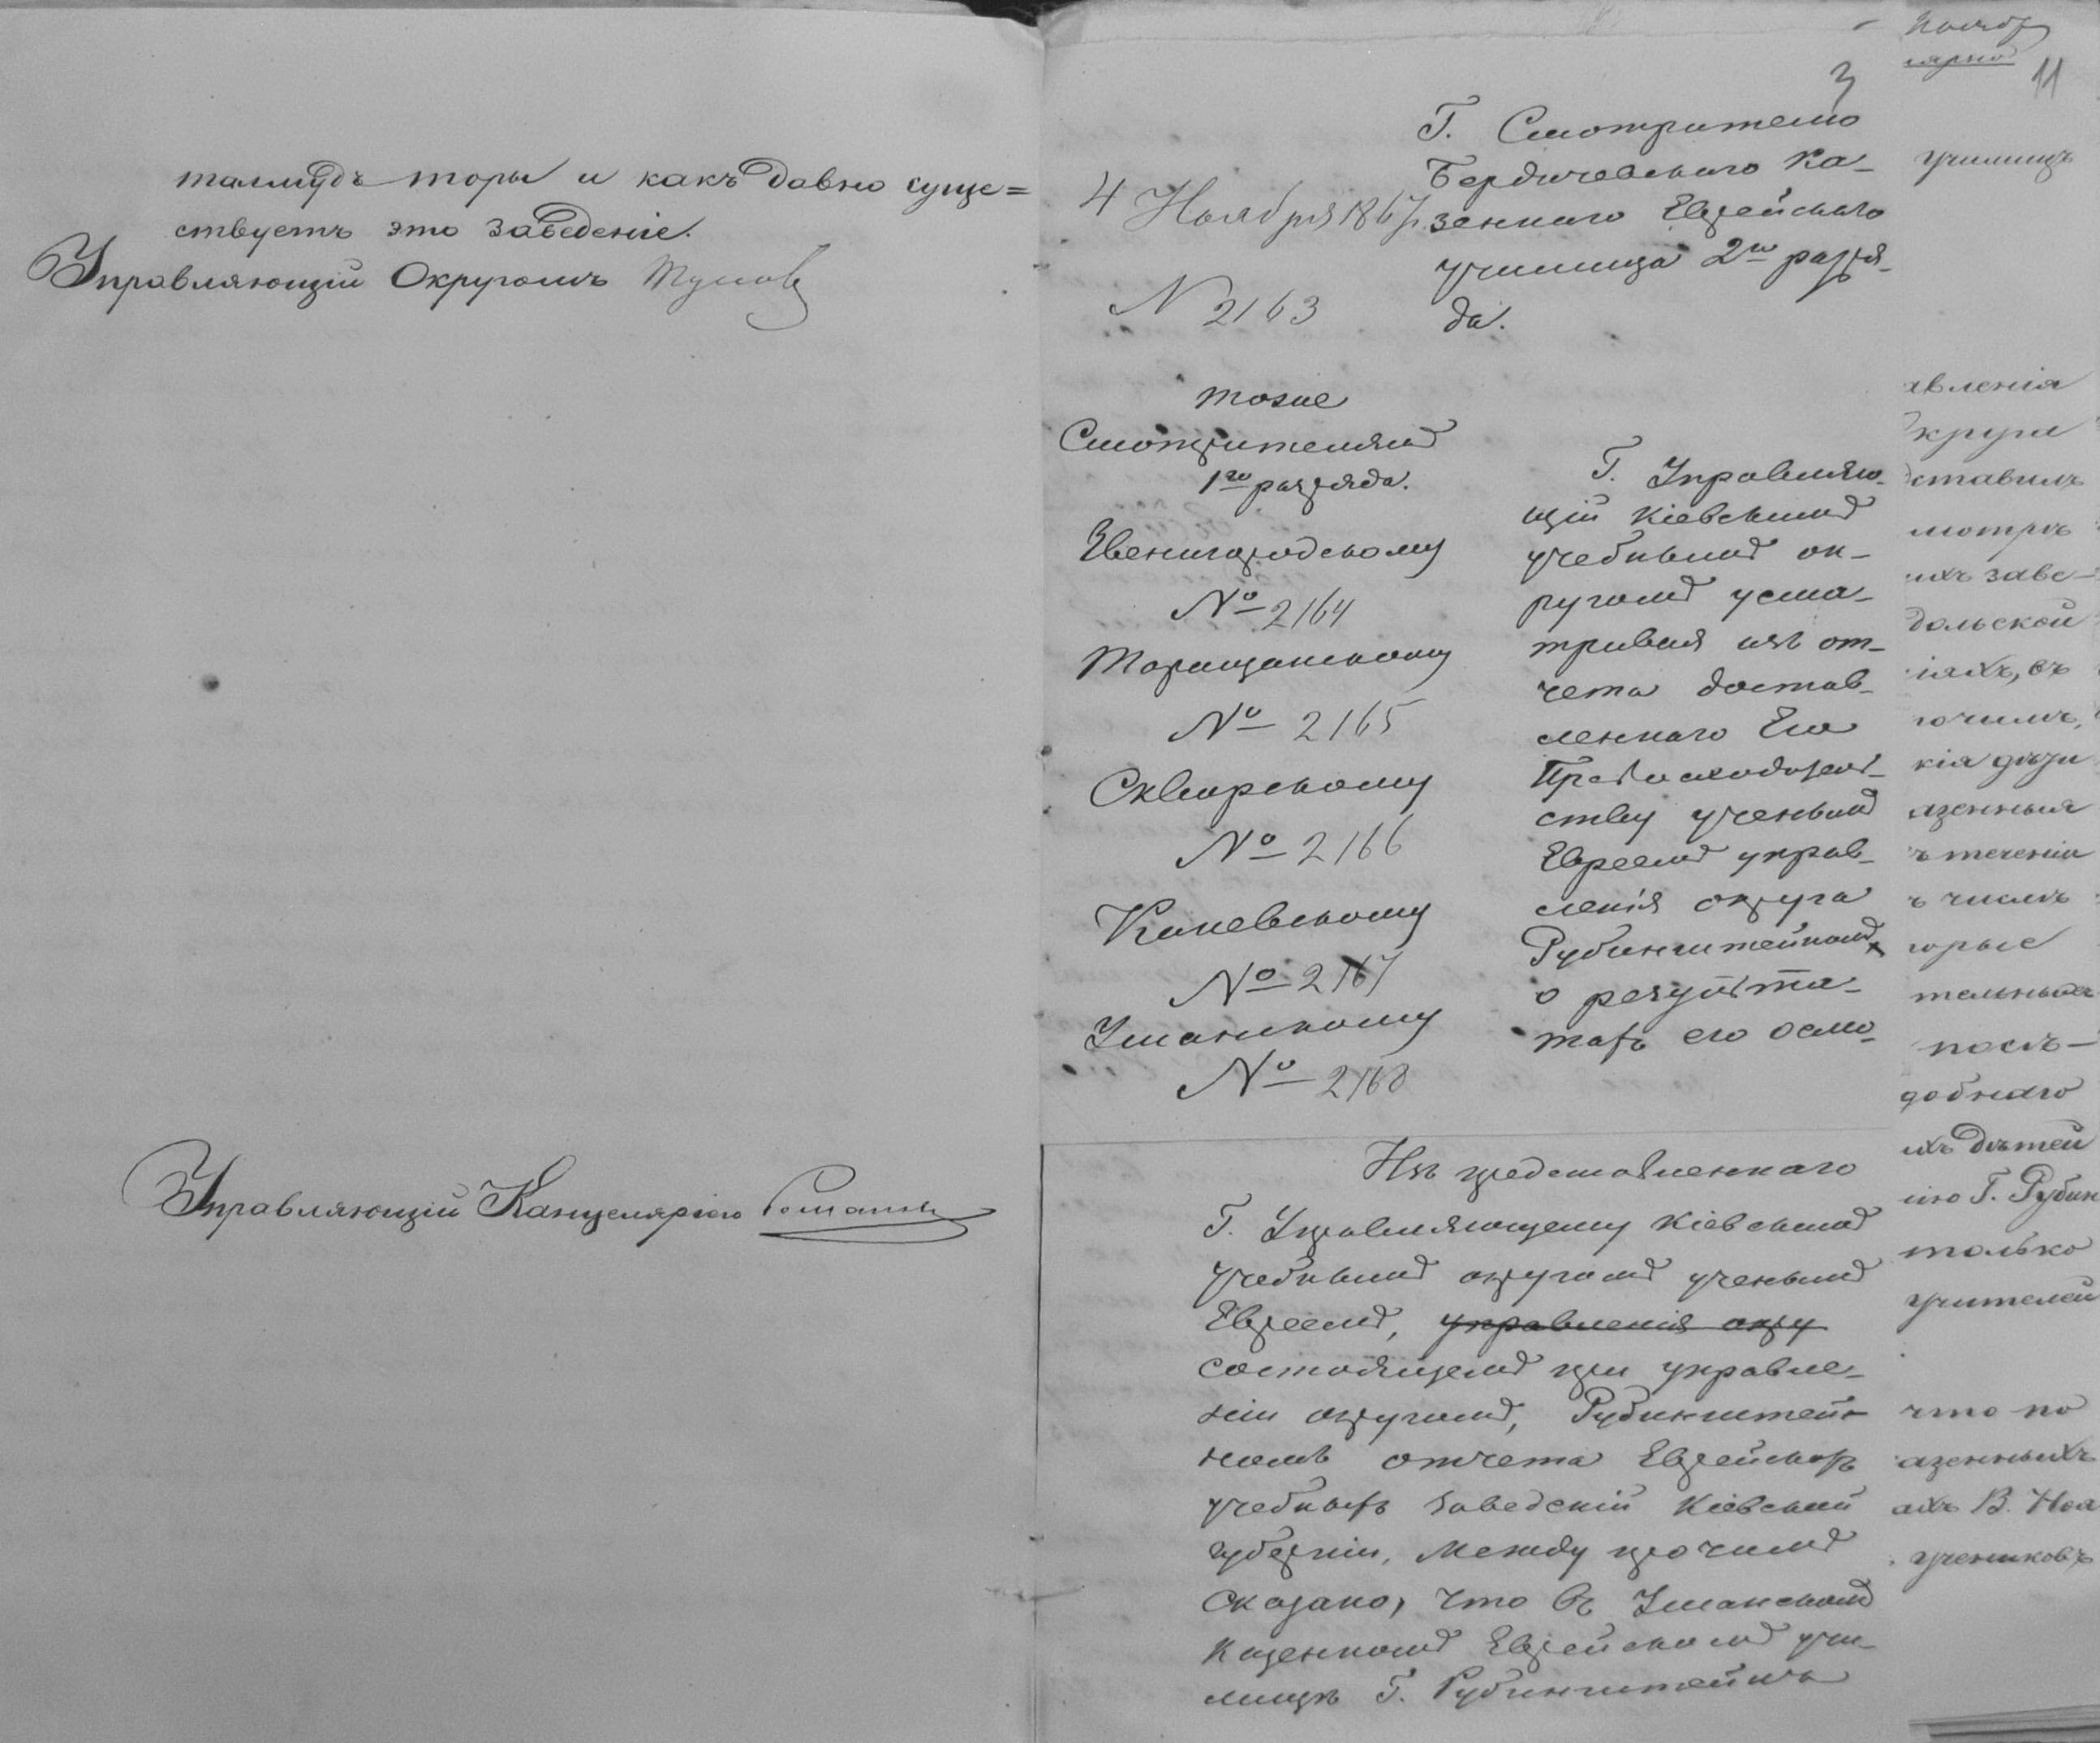 талмудъ торы и какъ давно суще=
ствуетъ это заведеніе.
Управляющій Округомъ Туловъ
Управляющій Канцеляріею Романъ
3
11
Г. Смотрителю
Бердичевскаго Ка-
зеннаго Еврейскаго
училища 2го разря-
да.
4 Ноября 1867 г.
N 2163
тоже
Смотрителямъ
1го разряда.
Звенигородскому
№ 2164
Таращанскому
№ 2165
Сквирскому
№ 2166
Каневскому
№ 2167
Уманскому
№ 2168
Г. Управляю-
щій Кіевскимъ
учебнымъ ок-
ругомъ усма-
тривая изъ от-
чета достав-
леннаго Его
Превосходитель-
ству ученымъ
Евреемъ управ-
ленія округа
Рубинштейномъ,
о результа-
тахъ его осмо-
Изъ представленнаго
Г. Управляющему Кіевскимъ
учебнымъ округомъ ученымъ
Евреемъ, управленія окру
состоящемъ при управле-
ніи округомъ, Рубинштей-
номъ отчета Еврейскихъ
учебныхъ заведеній Кіевской
губерніи, между прочимъ
сказано, что въ Уманскомъ
казенномъ Еврейскомъ учи-
лищѣ Г. Рубинштейнъ
училищъ
авленія
круги
ставилъ
мотръ
ихъ заве-
дольской
іяхъ, въ
рочимъ,
кія дѣти
азенныя
ъ теченіи
ъ числѣ
орые
тельная
послѣ-
добнаго
ихъ дѣтей
ію Г. Рубин
только
учителей
что по
азенныхъ
ахъ В. Ноа
учениковъ